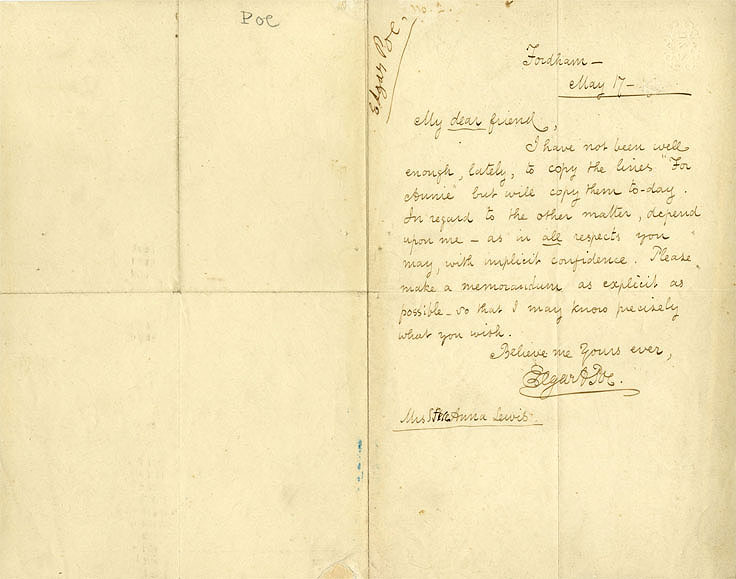 Poe
Edgar Poe.
No. 2.
Fordham —
May 17 —
My dear friend,
I have not been well
enough, lately, to copy the lines "For
Annie" but will copy them to-day.
In regard to the other matter, depend
upon me — as in all respects you
may, with implicit confidence. Please
make a memorandum as explicit as
possible — so that I may know precisely
what you wish.
Believe me Yours ever,
Edgar A Poe.
Mrs Anna Lewis.